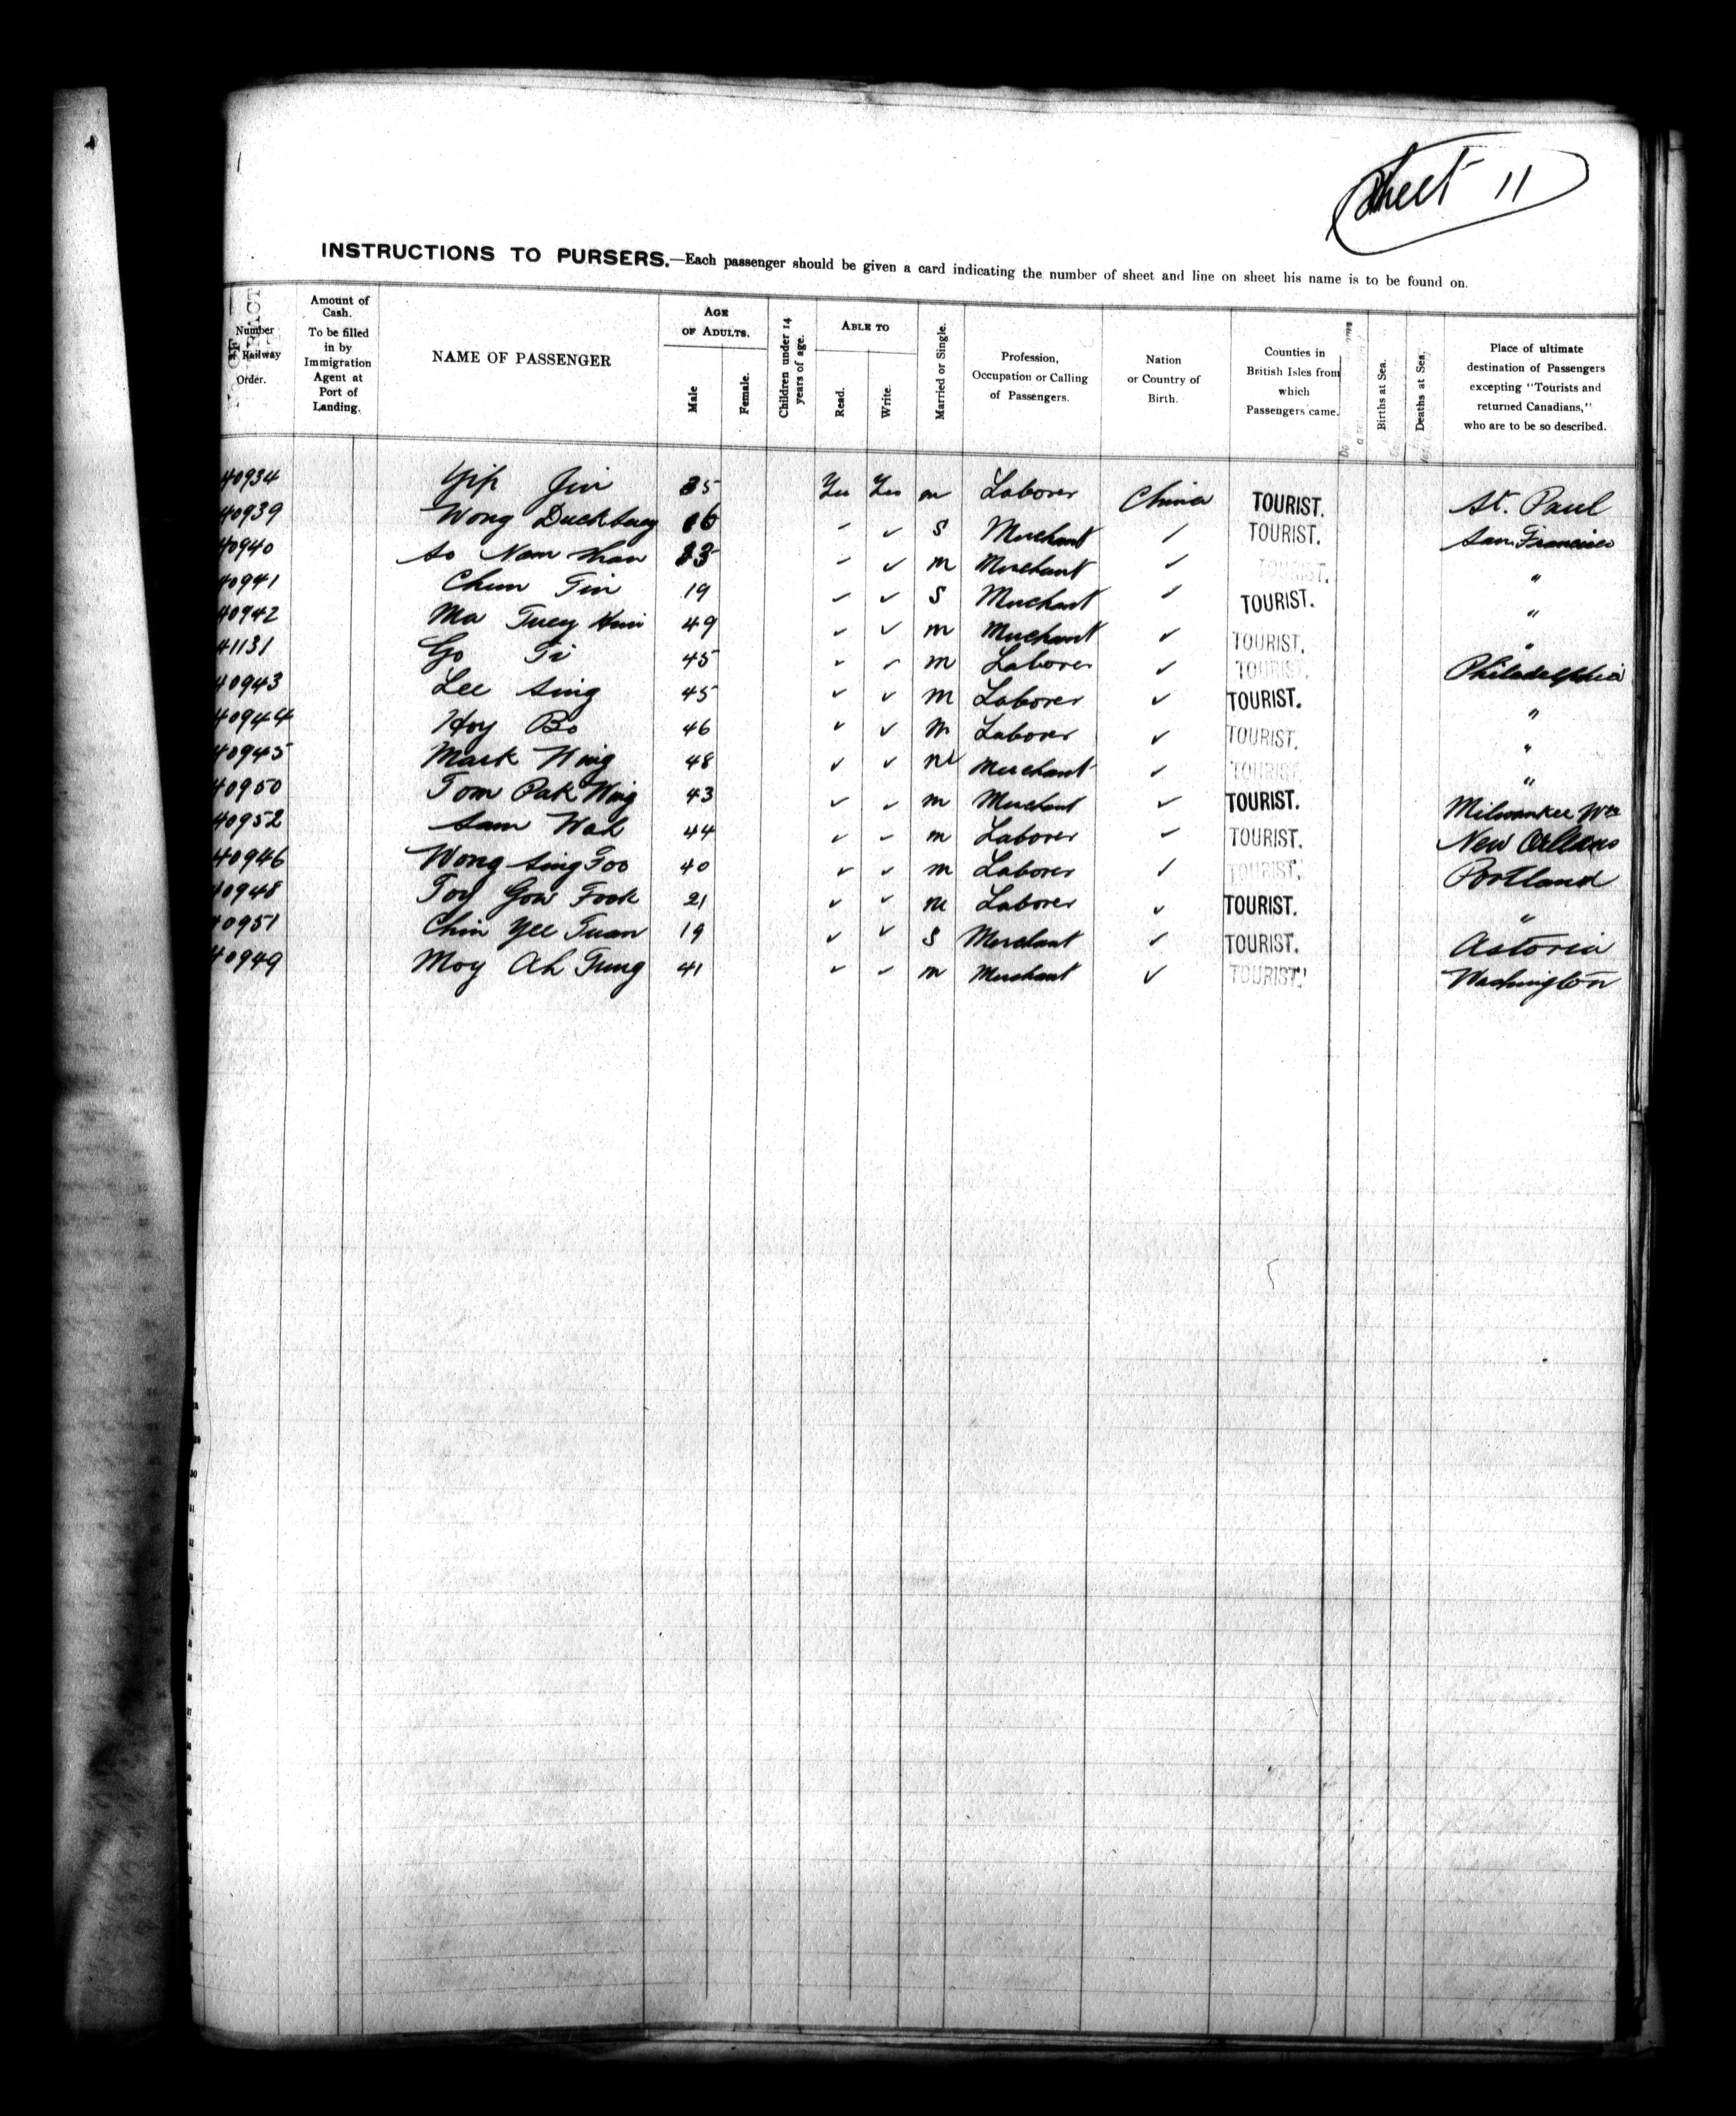 Sheet 11
INSTRUCTIONS TO PURSERS.—Each passenger should be given a card indicating the number of sheet and line on sheet his name is to be found on.
Number Railway Order.
Amount of Cash. To be filled in by Immigration Agent at Port of Landing.
NAME OF PASSENGER
AGE OF ADULTS.
Male
Female.
Children under 14 years of age.
ABLE TO
Read.
Write.
Married or Single.
Profession, Occupation or Calling of Passengers.
Nation or Country of Birth.
Counties in British Isles from which Passengers came.
Births at Sea.
Deaths at Sea.
Place of ultimate destination of Passengers excepting "Tourists and returned Canadians," who are to be so described.
40934 Yip Jin 35 Yes Yes m Laborer China TOURIST. St. Paul
40939 Wong Duck 16 - ✓ S Merchant ✓ TOURIST. San Francisco
40940 So Nam - ✓ m Merchant ✓ TOURIST. "
40941 Chun Tin 19 ✓ ✓ S Merchant ✓ TOURIST. "
40942 Ma Tuey 49 ✓ ✓ m Merchant ✓ TOURIST. "
41131 Go Ti 45 ✓ ✓ m Laborer ✓ TOURIST. Philadelphia
40943 Lee Sing 45 ✓ ✓ m Laborer ✓ TOURIST. "
40944 Hoy Bo 46 ✓ ✓ m Laborer ✓ TOURIST. "
40945 Mark Wing 48 ✓ ✓ m Merchant ✓ TOURIST. "
40950 Tom Pak Wing 43 ✓ ✓ m Merchant ✓ TOURIST. Milwaukee Wis
40952 Sam Wah 44 ✓ - m Laborer ✓ TOURIST. New Orleans
40946 Wong Sing Foo 40 ✓ ✓ m Laborer ✓ TOURIST. Portland
40948 Toy Gow Fook 21 ✓ ✓ m Laborer ✓ TOURIST. "
40951 Chin Yee Tuan 19 ✓ ✓ S Merchant ✓ TOURIST. Astoria
40949 Moy Ah Tung 41 ✓ - m Merchant ✓ TOURIST. Washington